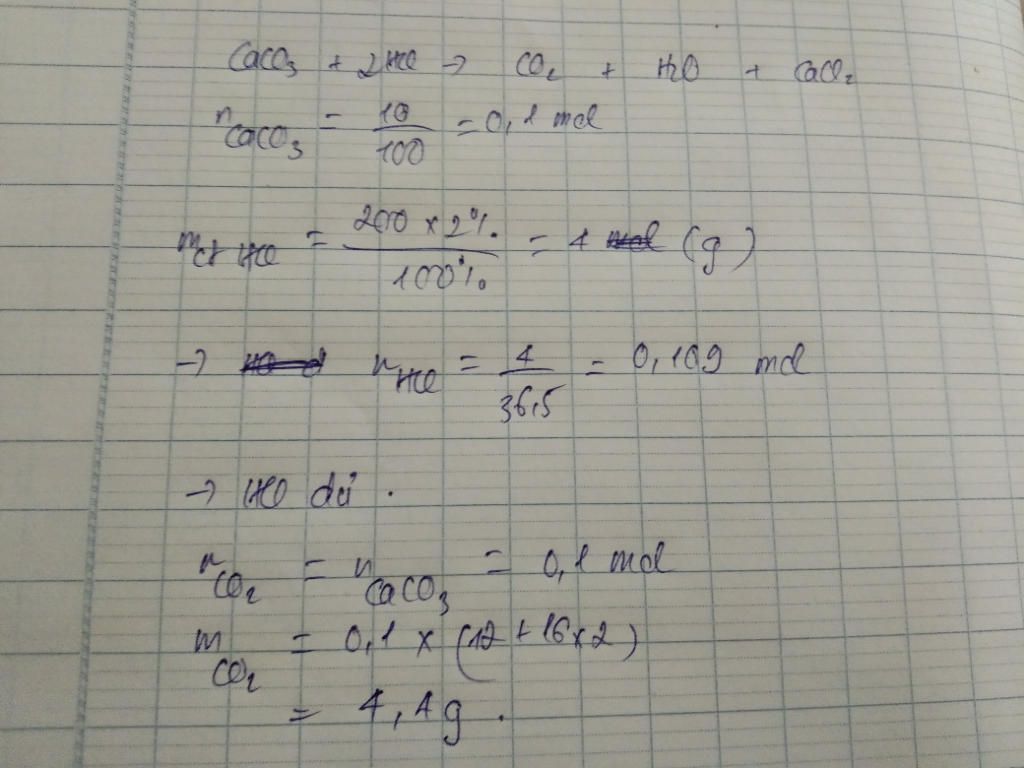 CaCO₃ + 2HCl → CO₂ + H₂O + CaCl₂
n CaCO₃ = 10/100 = 0,1 mol
m ct HCl = 200 x 2% / 100% = 4 (g)
→ n HCl = 4/36,5 = 0,109 mol
→ HCl dư .
n CO₂ = n CaCO₃ = 0,1 mol
m CO₂ = 0,1 x (12 + 16x2)
= 4,4g .